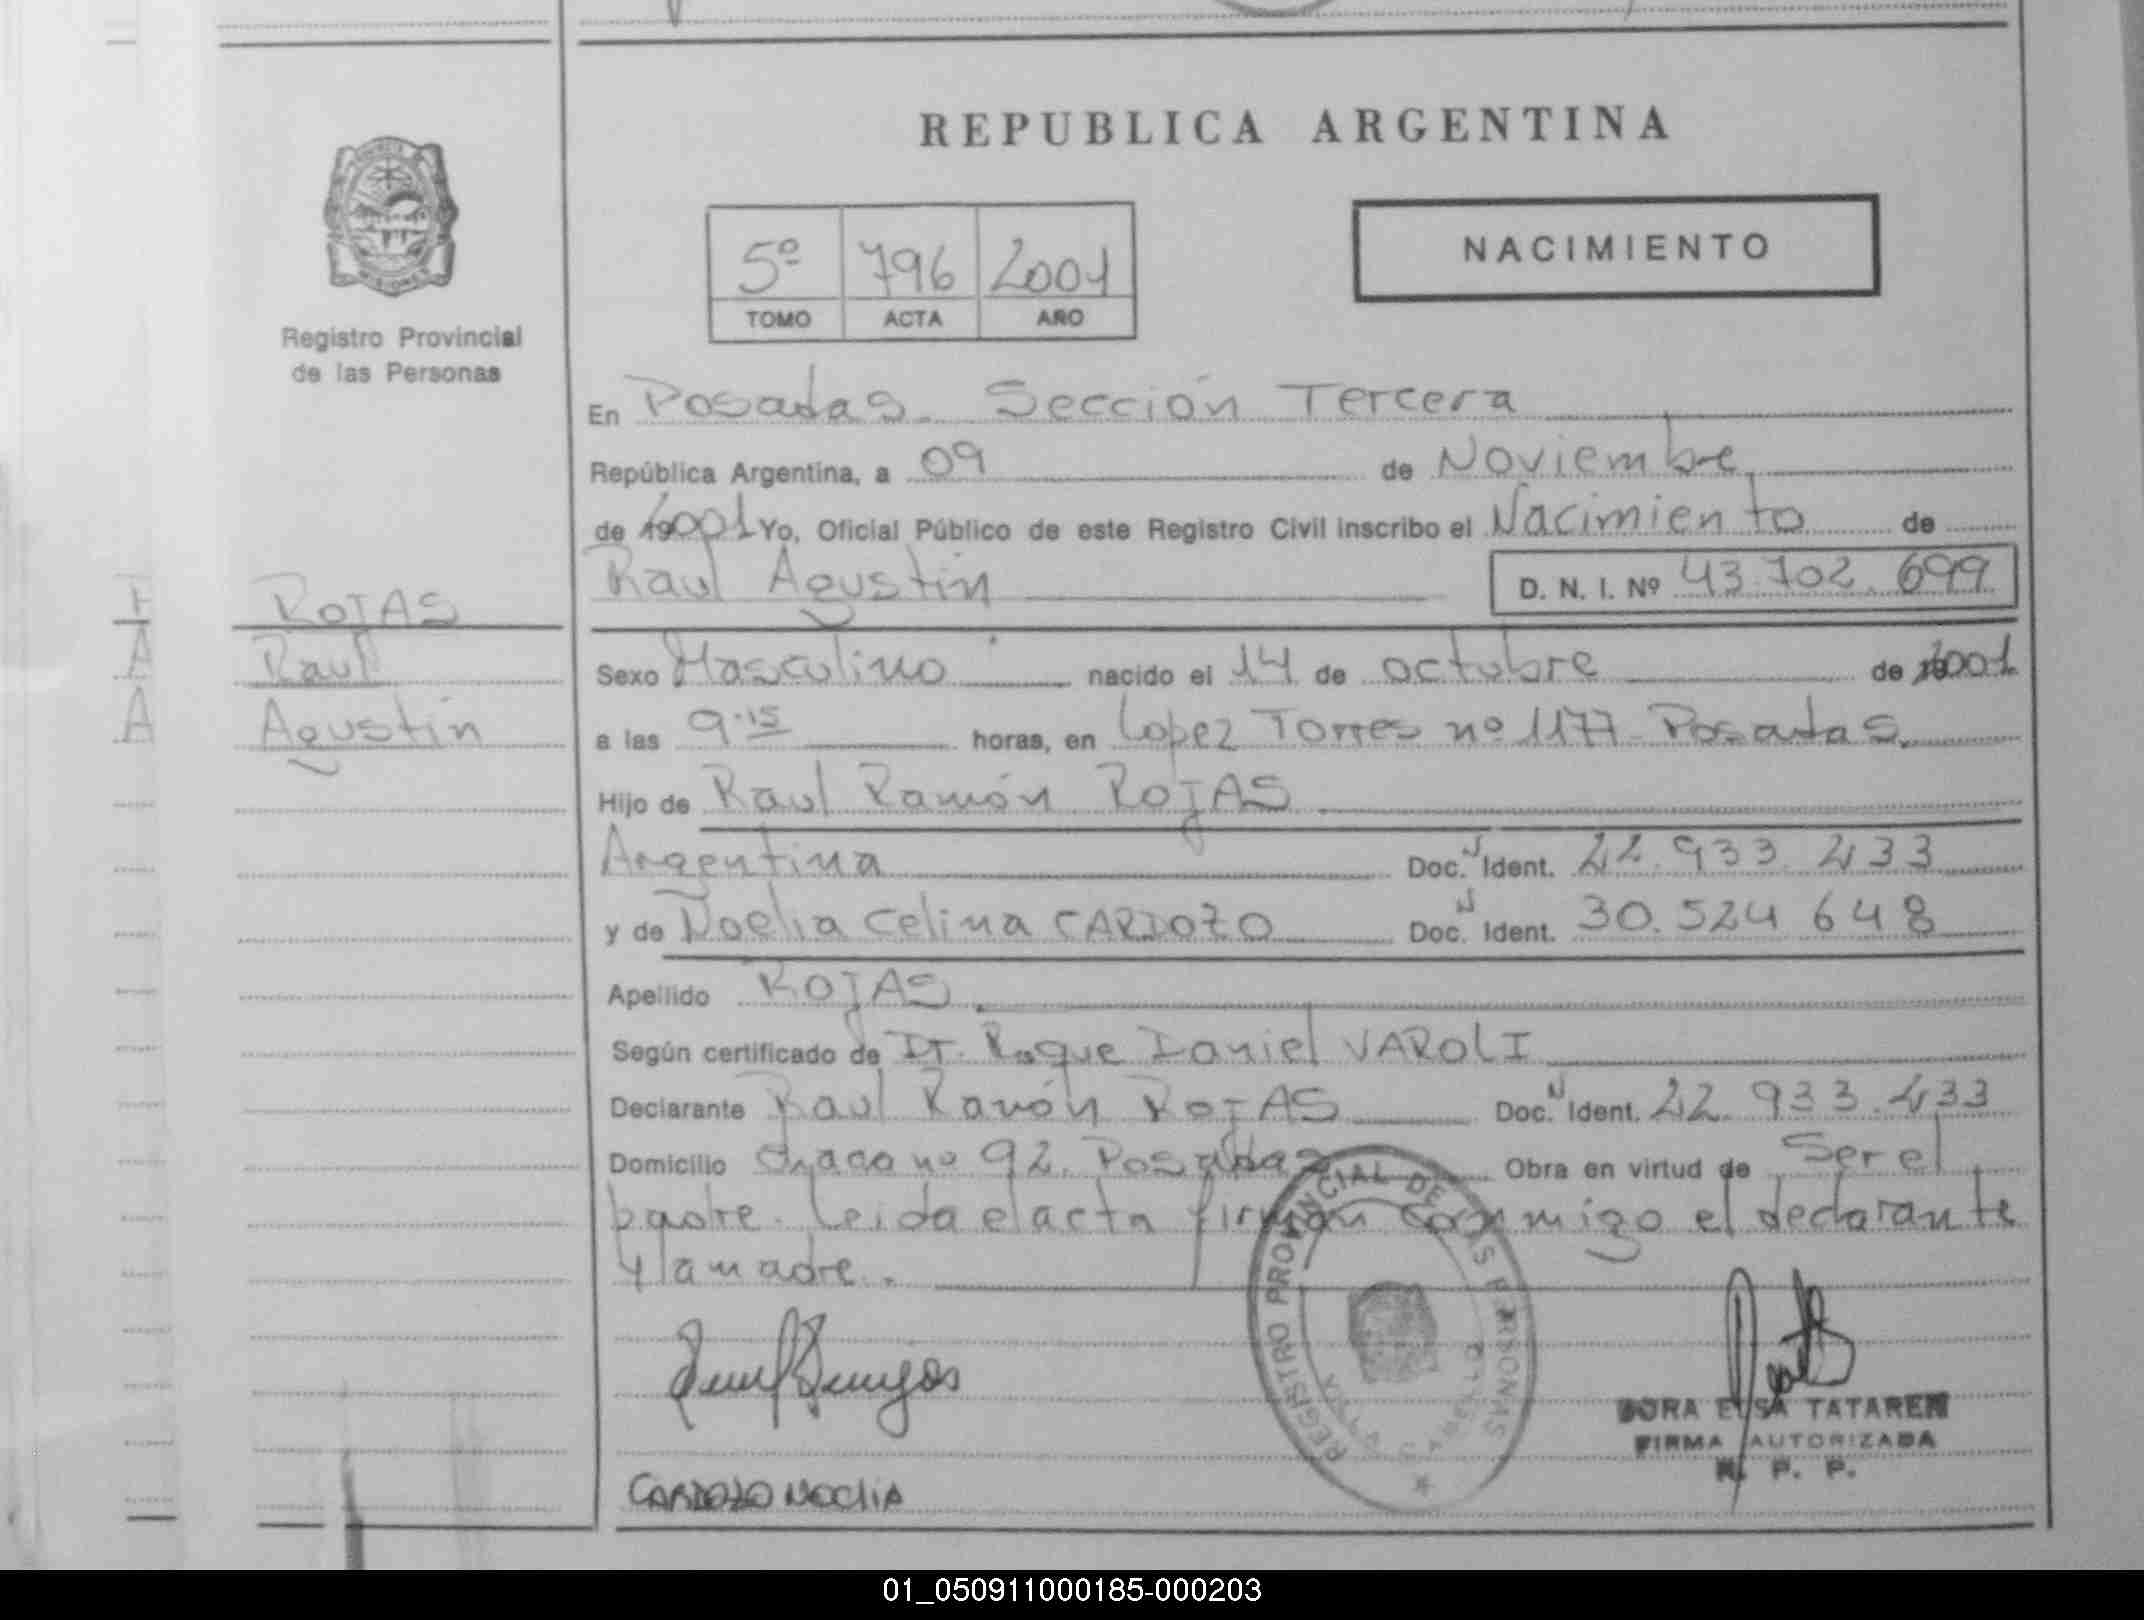 REPUBLICA ARGENTINA
5º 796 2001
TOMO ACTA AÑO
NACIMIENTO
Registro Provincial
de las Personas
En Posadas. Sección Tercera
República Argentina, a 09 de Noviembre
de 2001 Yo, Oficial Público de este Registro Civil inscribo el Nacimiento de
Raul Agustin D. N. I. Nº 43.702.699
ROJAS
Raul
Agustin
Sexo Masculino nacido el 14 de octubre de 2001
a las 9.15 horas, en Lopez Torres nº 1177 Posadas.
Hijo de Raul Ramón ROJAS
Argentina Doc. N Ident. 22.933.433
y de Noelia Celina CARDOZO Doc. N Ident. 30.524 648
Apellido ROJAS
Según certificado de Dr. Roque Daniel VAROLI
Declarante Raul Ramón ROJAS Doc. N Ident. 22.933.433
Domicilio Chaco nº 92. Posadas Obra en virtud de Ser el
padre. Leida el acta firman conmigo el declarante
y la madre.
REGISTRO PROVINCIAL DE LAS PERSONAS
CARDOZO NOELIA
DORA ELSA TATAREN
FIRMA AUTORIZADA
R. P. P.
01_050911000185-000203